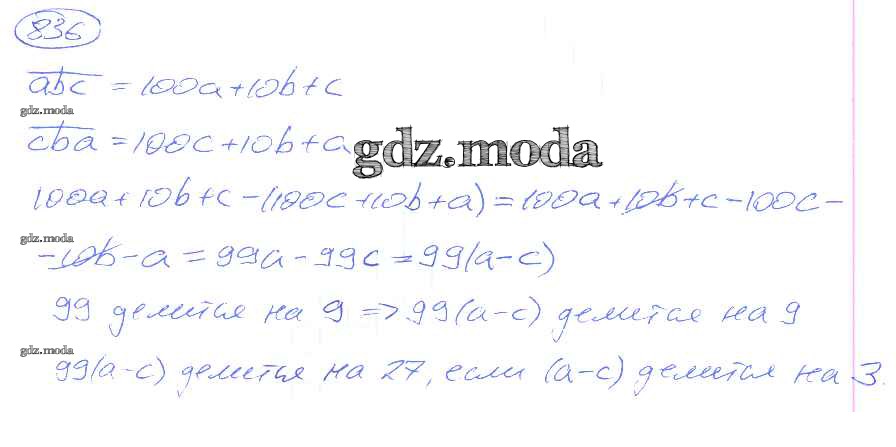 836
abc = 100a+10b+c
gdz.moda
cba = 100c+10b+a
gdz.moda
100a+10b+c-(100c+10b+a)=100a+10b+c-100c-
gdz.moda
-10b-a=99a-99c=99(a-c)
99 делится на 9 => 99(a-c) делится на 9
gdz.moda
99(a-c) делится на 27, если (a-c) делится на 3.